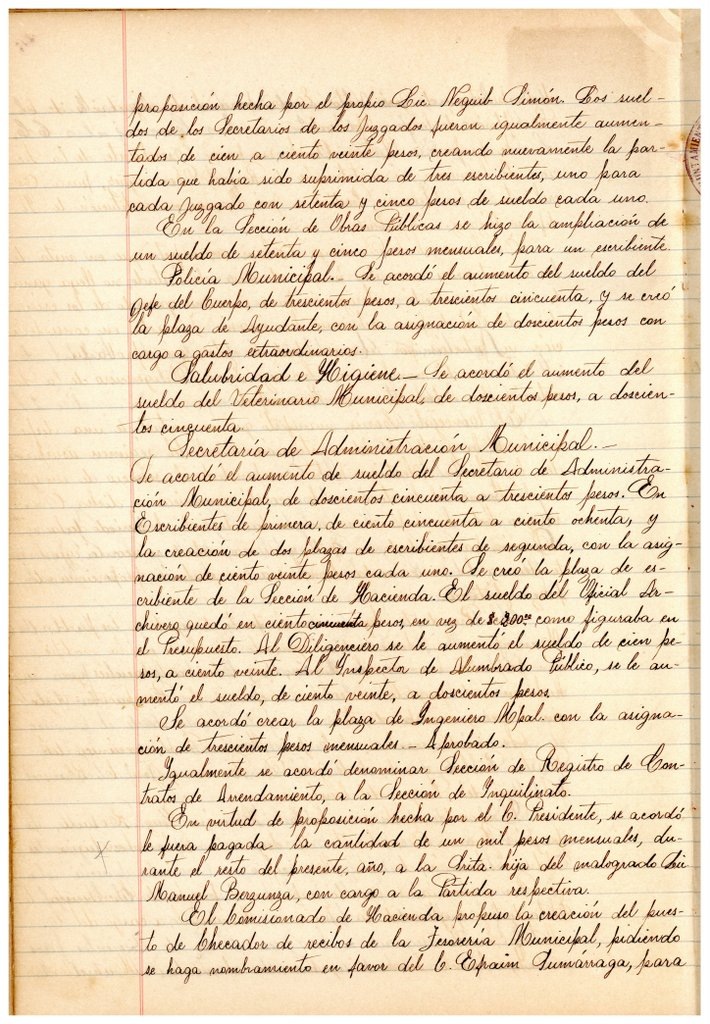 proposición hecha por el propio Lic. Neguib Simón. Los suel-
dos de los Secretarios de los Juzgados fueron igualmente aumen-
tados de cien a ciento veinte pesos, creando nuevamente la par-
tida que había sido suprimida de tres escribientes, uno para
cada Juzgado con setenta y cinco pesos de sueldo cada uno.
En la Sección de Obras Públicas se hizo la ampliación de
un sueldo de setenta y cinco pesos mensuales, para un escribiente.
Policía Municipal.- Se acordó el aumento del sueldo del
Jefe del Cuerpo, de trescientos pesos, a trescientos cincuenta, y se creó
la plaza de Ayudante, con la asignación de doscientos pesos con
cargo a gastos extraordinarios.
Salubridad e Higiene.- Se acordó el aumento del
sueldo del Veterinario Municipal, de doscientos pesos, a doscien-
tos cincuenta.
Secretaría de Administración Municipal.-
Se acordó el aumento de sueldo del Secretario de Administra-
ción Municipal, de doscientos cincuenta a trescientos pesos. En
Escribientes de primera, de ciento cincuenta a ciento ochenta, y
la creación de dos plazas de escribientes de segunda, con la asig-
nación de ciento veinte pesos cada uno. Se creó la plaza de es-
cribiente de la Sección de Hacienda. El sueldo del Oficial Ar-
chivero quedó en ciento cincuenta pesos, en vez de $ 300.00 como figuraba en
el Presupuesto. Al Diligenciero se le aumentó el sueldo de cien pe-
sos, a ciento veinte. Al Inspector de Alumbrado Público, se le au-
mentó el sueldo, de ciento veinte, a doscientos pesos.
Se acordó crear la plaza de Ingeniero Mpal. con la asigna-
ción de trescientos pesos mensuales.- Aprobado.
Igualmente se acordó denominar Sección de Registro de Con-
tratos de Arrendamiento, a la Sección de Inquilinato.
En virtud de proposición hecha por el C. Presidente, se acordó
le fuera pagada la cantidad de un mil pesos mensuales, du-
rante el resto del presente, año, a la Srita. hija del malogrado Lic
Manuel Berzunza, con cargo a la Partida respectiva.
El Comisionado de Hacienda propuso la creación del pues-
to de Checador de recibos de la Tesorería Municipal, pidiendo
se haga nombramiento en favor del C. Efraim Sumárraga, para